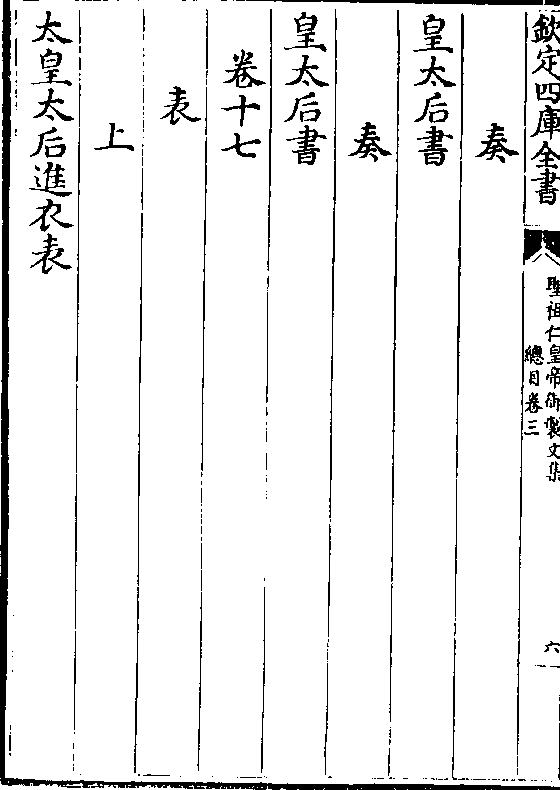 欽定四庫全書
聖祖仁皇帝御製文集
總目卷三
六
奏
皇太后書
奏
皇太后書
卷十七
表
上
太皇太后進衣表